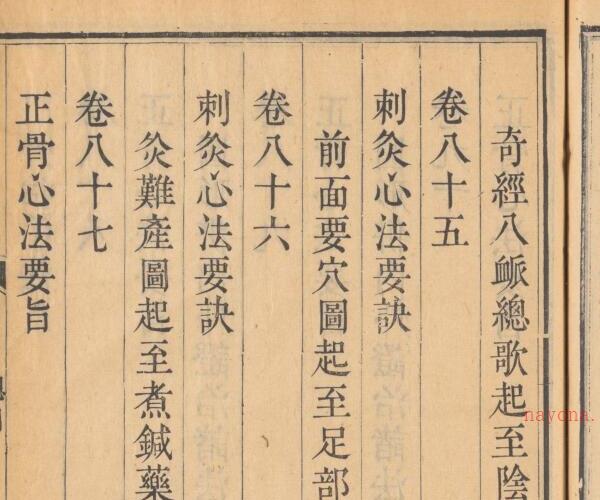 奇經八䘑總歌起至陰
卷八十五
刺灸心法要訣
前面要穴圖起至足部
卷八十六
刺灸心法要訣
灸難產圖起至煮鍼藥
卷八十七
正骨心法要旨
nayona.